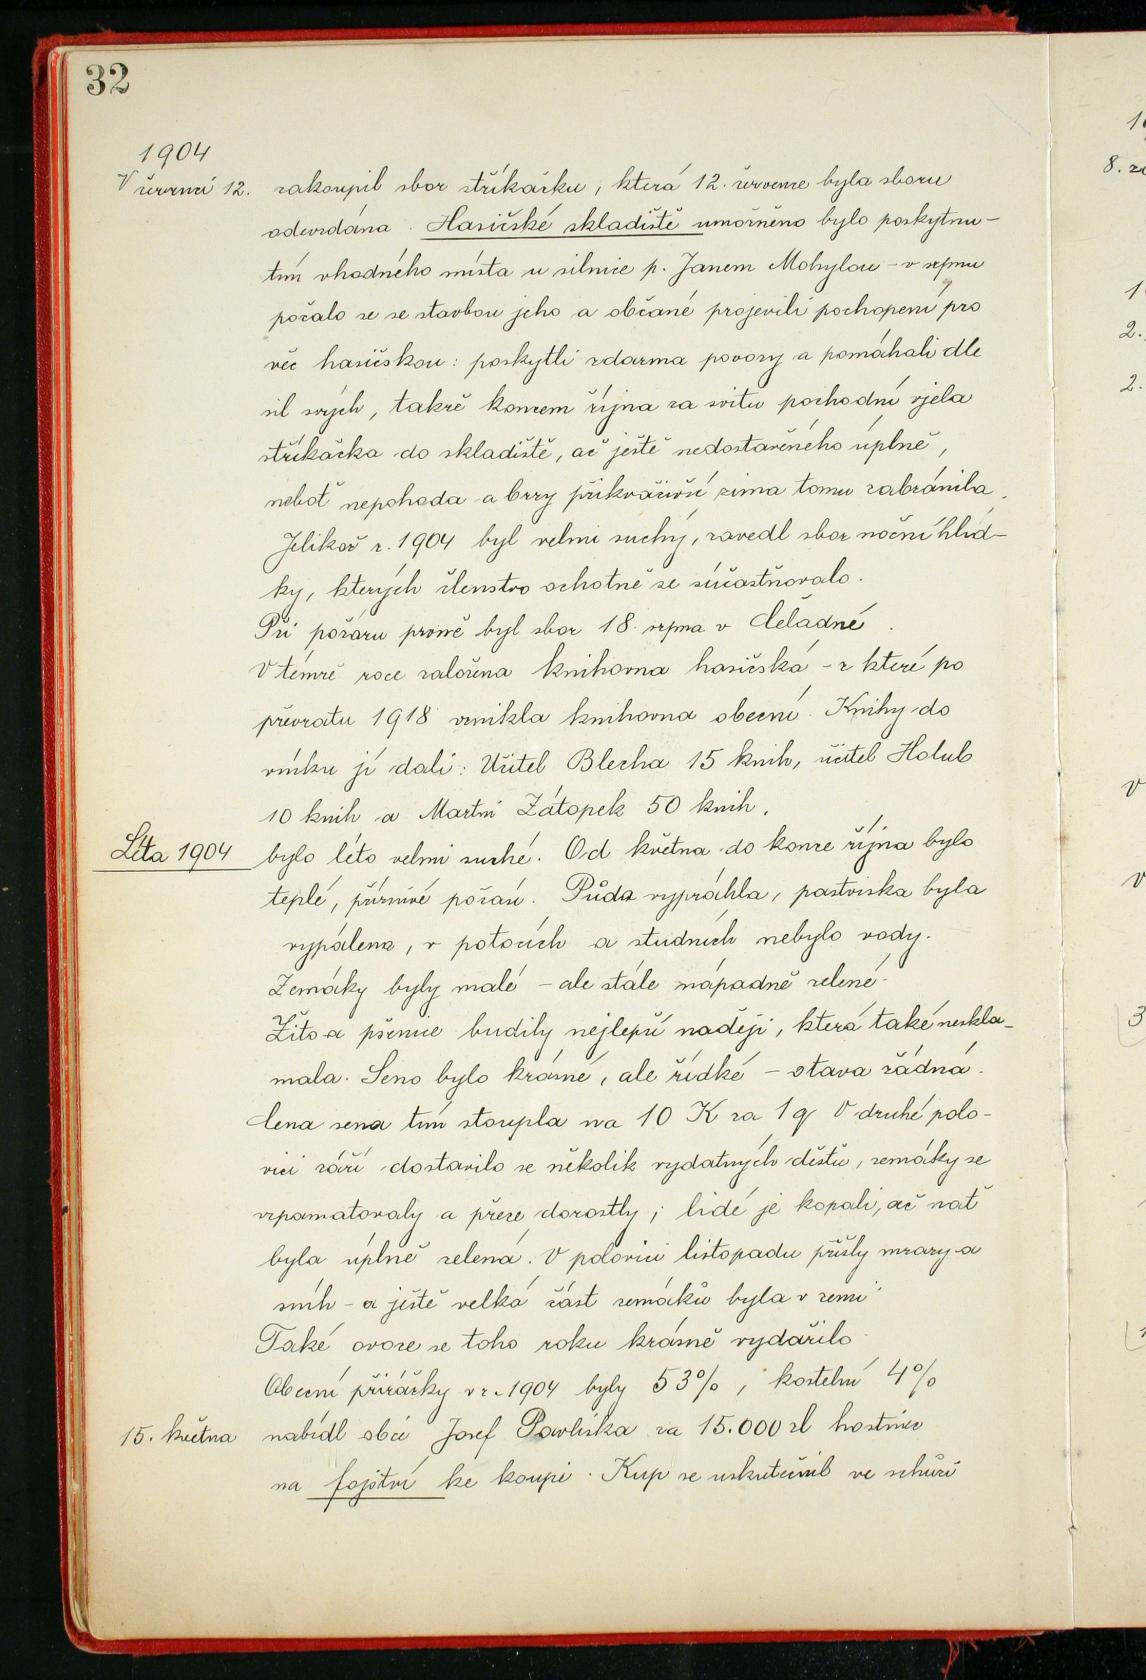 32
1904
V červnu 12. zakoupil sbor stříkačku, která 12. července byla sboru
odevzdána. Hasičské skladiště umožněno bylo poskytnu-
tím vhodného místa u silnice p. Janem Mohylou - v srpnu
počalo se se stavbou jeho a občané projevili pochopení pro
věc hasičskou: poskytli zdarma povozy a pomáhali dle
sil svých, takže koncem října za svitu pochodní vjela
stříkačka do skladiště, ač ještě nedostavěného úplně,
neboť nepohoda a brzy přikvačivší zima tomu zabránila.
Jelikož r. 1904 byl velmi suchý, zavedl sbor noční hlíd-
ky, kterých členstvo ochotně se súčastňovalo.
Při požáru prvně byl sbor 18. srpna v Čeladné.
V témže roce založena knihovna hasičská - z které po
převratu 1918 vznikla knihovna obecní. Knihy do
vínku jí dali: Učitel Blecha 15 knih, učitel Holub
10 knih a Martin Zátopek 50 knih.
Léta 1904 bylo léto velmi suché. Od května do konce října bylo
teplé, příznivé počasí. Půda vypráhla, pastviska byla
vypálena, v potocích a studních nebylo vody.
Zemáky byly malé - ale stále nápadně zelené.
Žito a pšenice budily nejlepší naději, která také neskla-
mala. Seno bylo krásné, ale řídké - otava žádná.
Cena sena tím stoupla na 10 K za 1 q V druhé polo-
vici září dostavilo se několik vydatných děštů, zemáky se
vzpamatovaly a přece dorostly; lidé je kopali, ač nať
byla úplně zelená. V polovici listopadu přišly mrazy a
sníh - a ještě velká část zemáků byla v zemi.
Také ovoce se toho roku krásně vydařilo.
Obecní přirážky v r. 1904 byly 53%, kostelní 4%
15. května nabídl obci Josef Pavliska za 15.000 zl hostinec
na fojtství ke koupi. Kup se uskutečnil ve schůzi